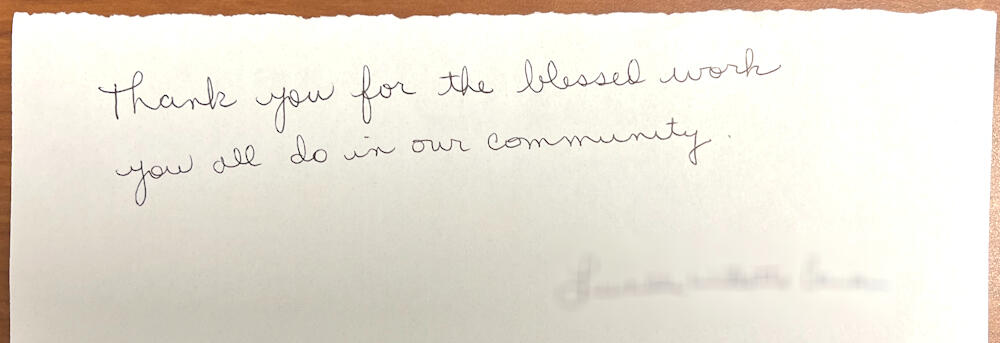 Thank you for the blessed work
you all do in our community.